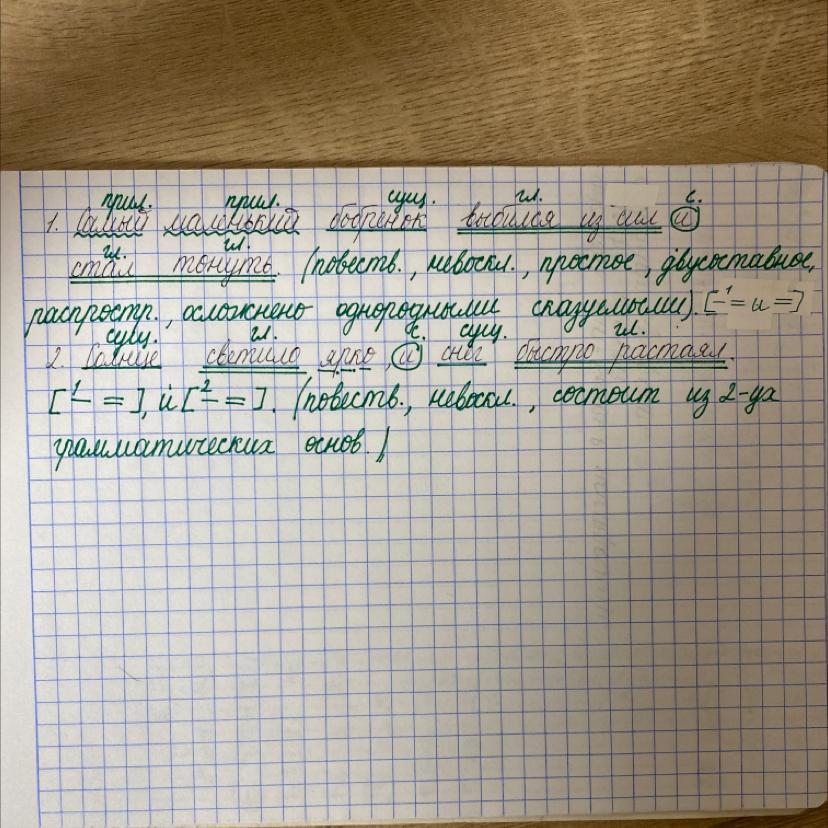 прил. прил. сущ. гл. с.
1. Самый маленький бобренок выбился из сил и
гл. гл.
стал тонуть. (повеств., невоскл., простое, двусоставное,
распростр., осложнено однородными сказуемыми). [-¹ = и =]
сущ. гл. с. сущ. гл.
2. Солнце светило ярко, и снег быстро растаял.
[-¹ =], и [-² =]. (повеств., невоскл., состоит из 2-ух
грамматических основ.)